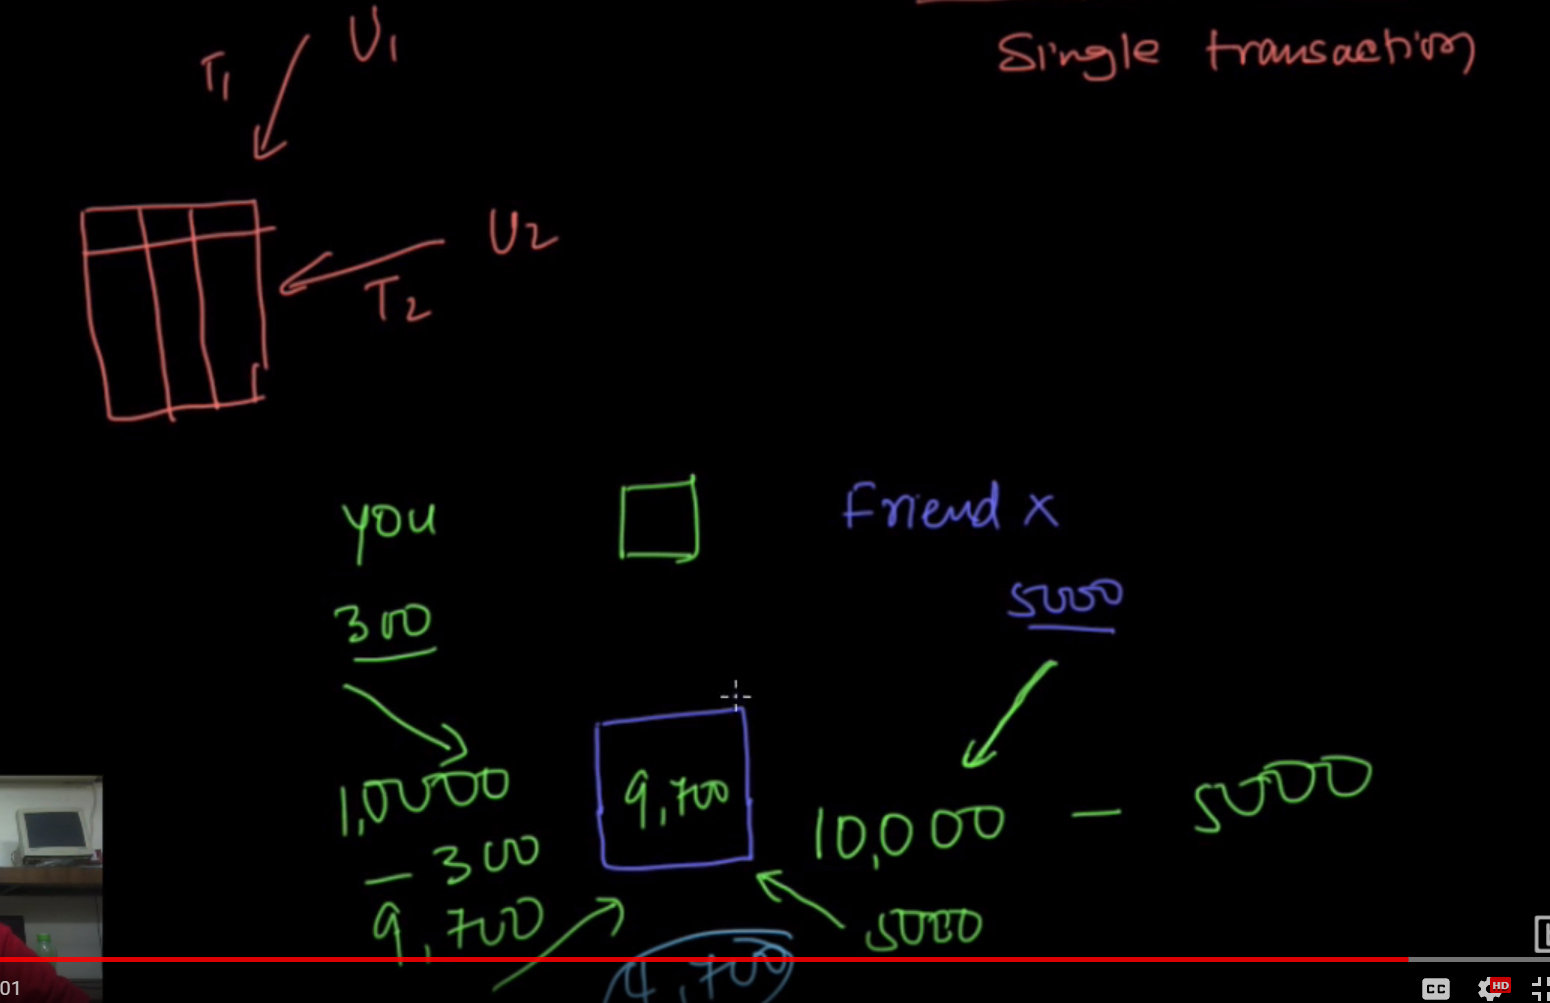 U1
T1
Single transaction
U2
T2
you
Friend x
300
5000
1,0000
9,700
10,000 - 5000
- 300
9,700
5000
4,700
01
CC
HD